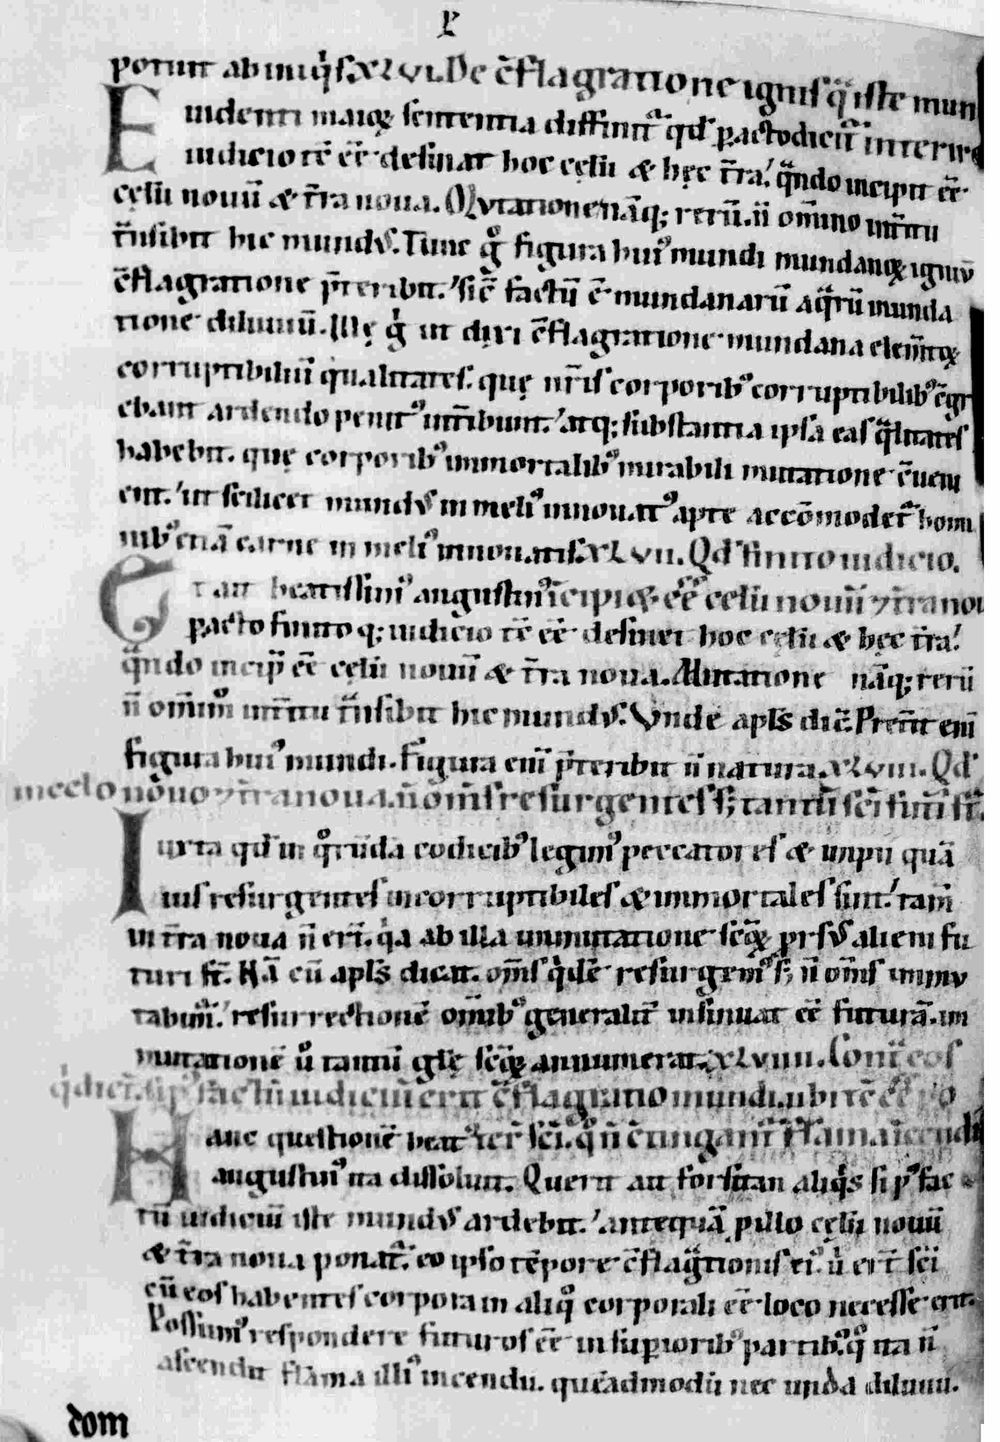 potuit ab iniq's. XLVI. De c̄flagratione ignis q̄ iste mun
Euidenti maiorꝝ sententia diffinit̄ qđ pacto dicit̄ interire
iudicio tc̄ ēē desinat hoc cęlū & hęc t̄ra. q̄ndo incipit ēē
cęlū nouū & t̄ra noua. Mutatione nāq; rerū ñ om̄ino int̄itu
t̄nsibit hic mund'. Tunc g° figura hui' mundi mundanoꝝ igniū
c̄flagratione p̄teribit. sic̄ factū ē mundanarū aq̄rū inunda
tione diluuiū. Illę g° ut dixi c̄flagratione mundana elem̄toꝝ
corruptibiliū qualitates. quę nr̄is corporib' corruptibilib' c̄gr
ebant ardendo penit' int̄ibunt. atq; substantia ipsa eas q̄litates
habebit. quę corporib' immortalib' mirabili mutatione c̄ueni
ent. ut scilicet mund' in meli' innouat' apte accōmodet̄ homi
nib' etiā carne in meli' innouatis. XLVII. Qđ finito iudicio.
Tratat beatissim' augustin' īcipi ēē celū nouū ⁊ t̄ra nou
pacto finito q; iudicio tc̄ ēē desinet hoc cęlū & hęc t̄ra.
q̄ndo incip̄ ēē cęlū nouū & t̄ra noua. Mutatione nāq; rerū
ñ om̄im int̄itu t̄nsibit hic mund'. Vnde apls dic̄. Pret̄it enī
figura hui' mundi. Figura enī p̄teribit ñ natura. XLVIII. Qđ
in celo nouo ⁊ t̄ra noua. ñ om̄s resurgentes s; tantū sc̄i futuri st̄.
Iuxta qđ in q°rūda codicib' legim' peccatores & impii quā
uis resurgentes incorruptibiles & immortales sint. tam̄
in t̄ra noua ñ er̄t. q̄a ab illa inmutatione sc̄oꝝ prs' alieni fu
turi st̄. Nā cū apls dicat. om̄s q'dē resurgem' s; ñ om̄s immu
tabim̄. resurrectionē om̄ib' generalit̄ insinuat ēē futurā. im
mutationē ū tantū glę sc̄oꝝ annumerat. XLVIIII. Cont̄ eos
q' dic̄t. si p' factū iudiciū erit c̄flagratio mundi. ubi tc̄ ēē po
Hanc questionē beat' ter̄ sc̄i. q° ñ c̄tingant̄ flama īcendii
augustin' ita dissoluit. Querit aut̄ forsitan aliq's si p' fac
tū iudiciū iste mund' ardebit. antequā p illo cęlū nouū
& t̄ra noua ponat̄. eo ipso tēpore c̄flag̃tionis ei' ū er̄t sc̄i
cū eos habentes corpora in aliq° corporali ēē loco necesse erit.
Possum' respondere futuros ēē in supiorib' partib'. q° ita ñ
ascendit flāma illi' incendii. quēadmodū nec unda diluuii.
dom